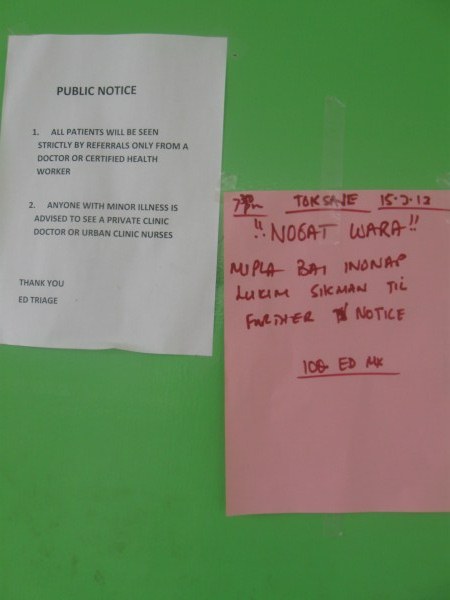 PUBLIC NOTICE
1. ALL PATIENTS WILL BE SEEN
STRICTLY BY REFERRALS ONLY FROM A
DOCTOR OR CERTIFIED HEALTH
WORKER
2. ANYONE WITH MINOR ILLNESS IS
ADVISED TO SEE A PRIVATE CLINIC
DOCTOR OR URBAN CLINIC NURSES
THANK YOU
ED TRIAGE
TOKSAVE
!! NOGAT WARA !!
MIPLA BAI INONAP
LUKIM SIKMAN TIL
FURTHER NOTICE
ED